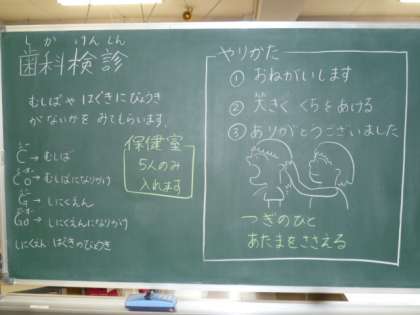 しか けんしん
歯科検診
むしばや はぐきにびょうき
がないかを みてもらいます。
シー
C→むしば
シーオー
Co→むしばになりかけ
ジー
G→しにくえん
ジーオー
Go→しにくえんになりかけ
しにくえん はぐきのびょうき
保健室
5人のみ
入れます
やりかた
① おねがいします
② 大きく くちをあける
③ ありがとうございました
つぎのひと
あたまをささえる